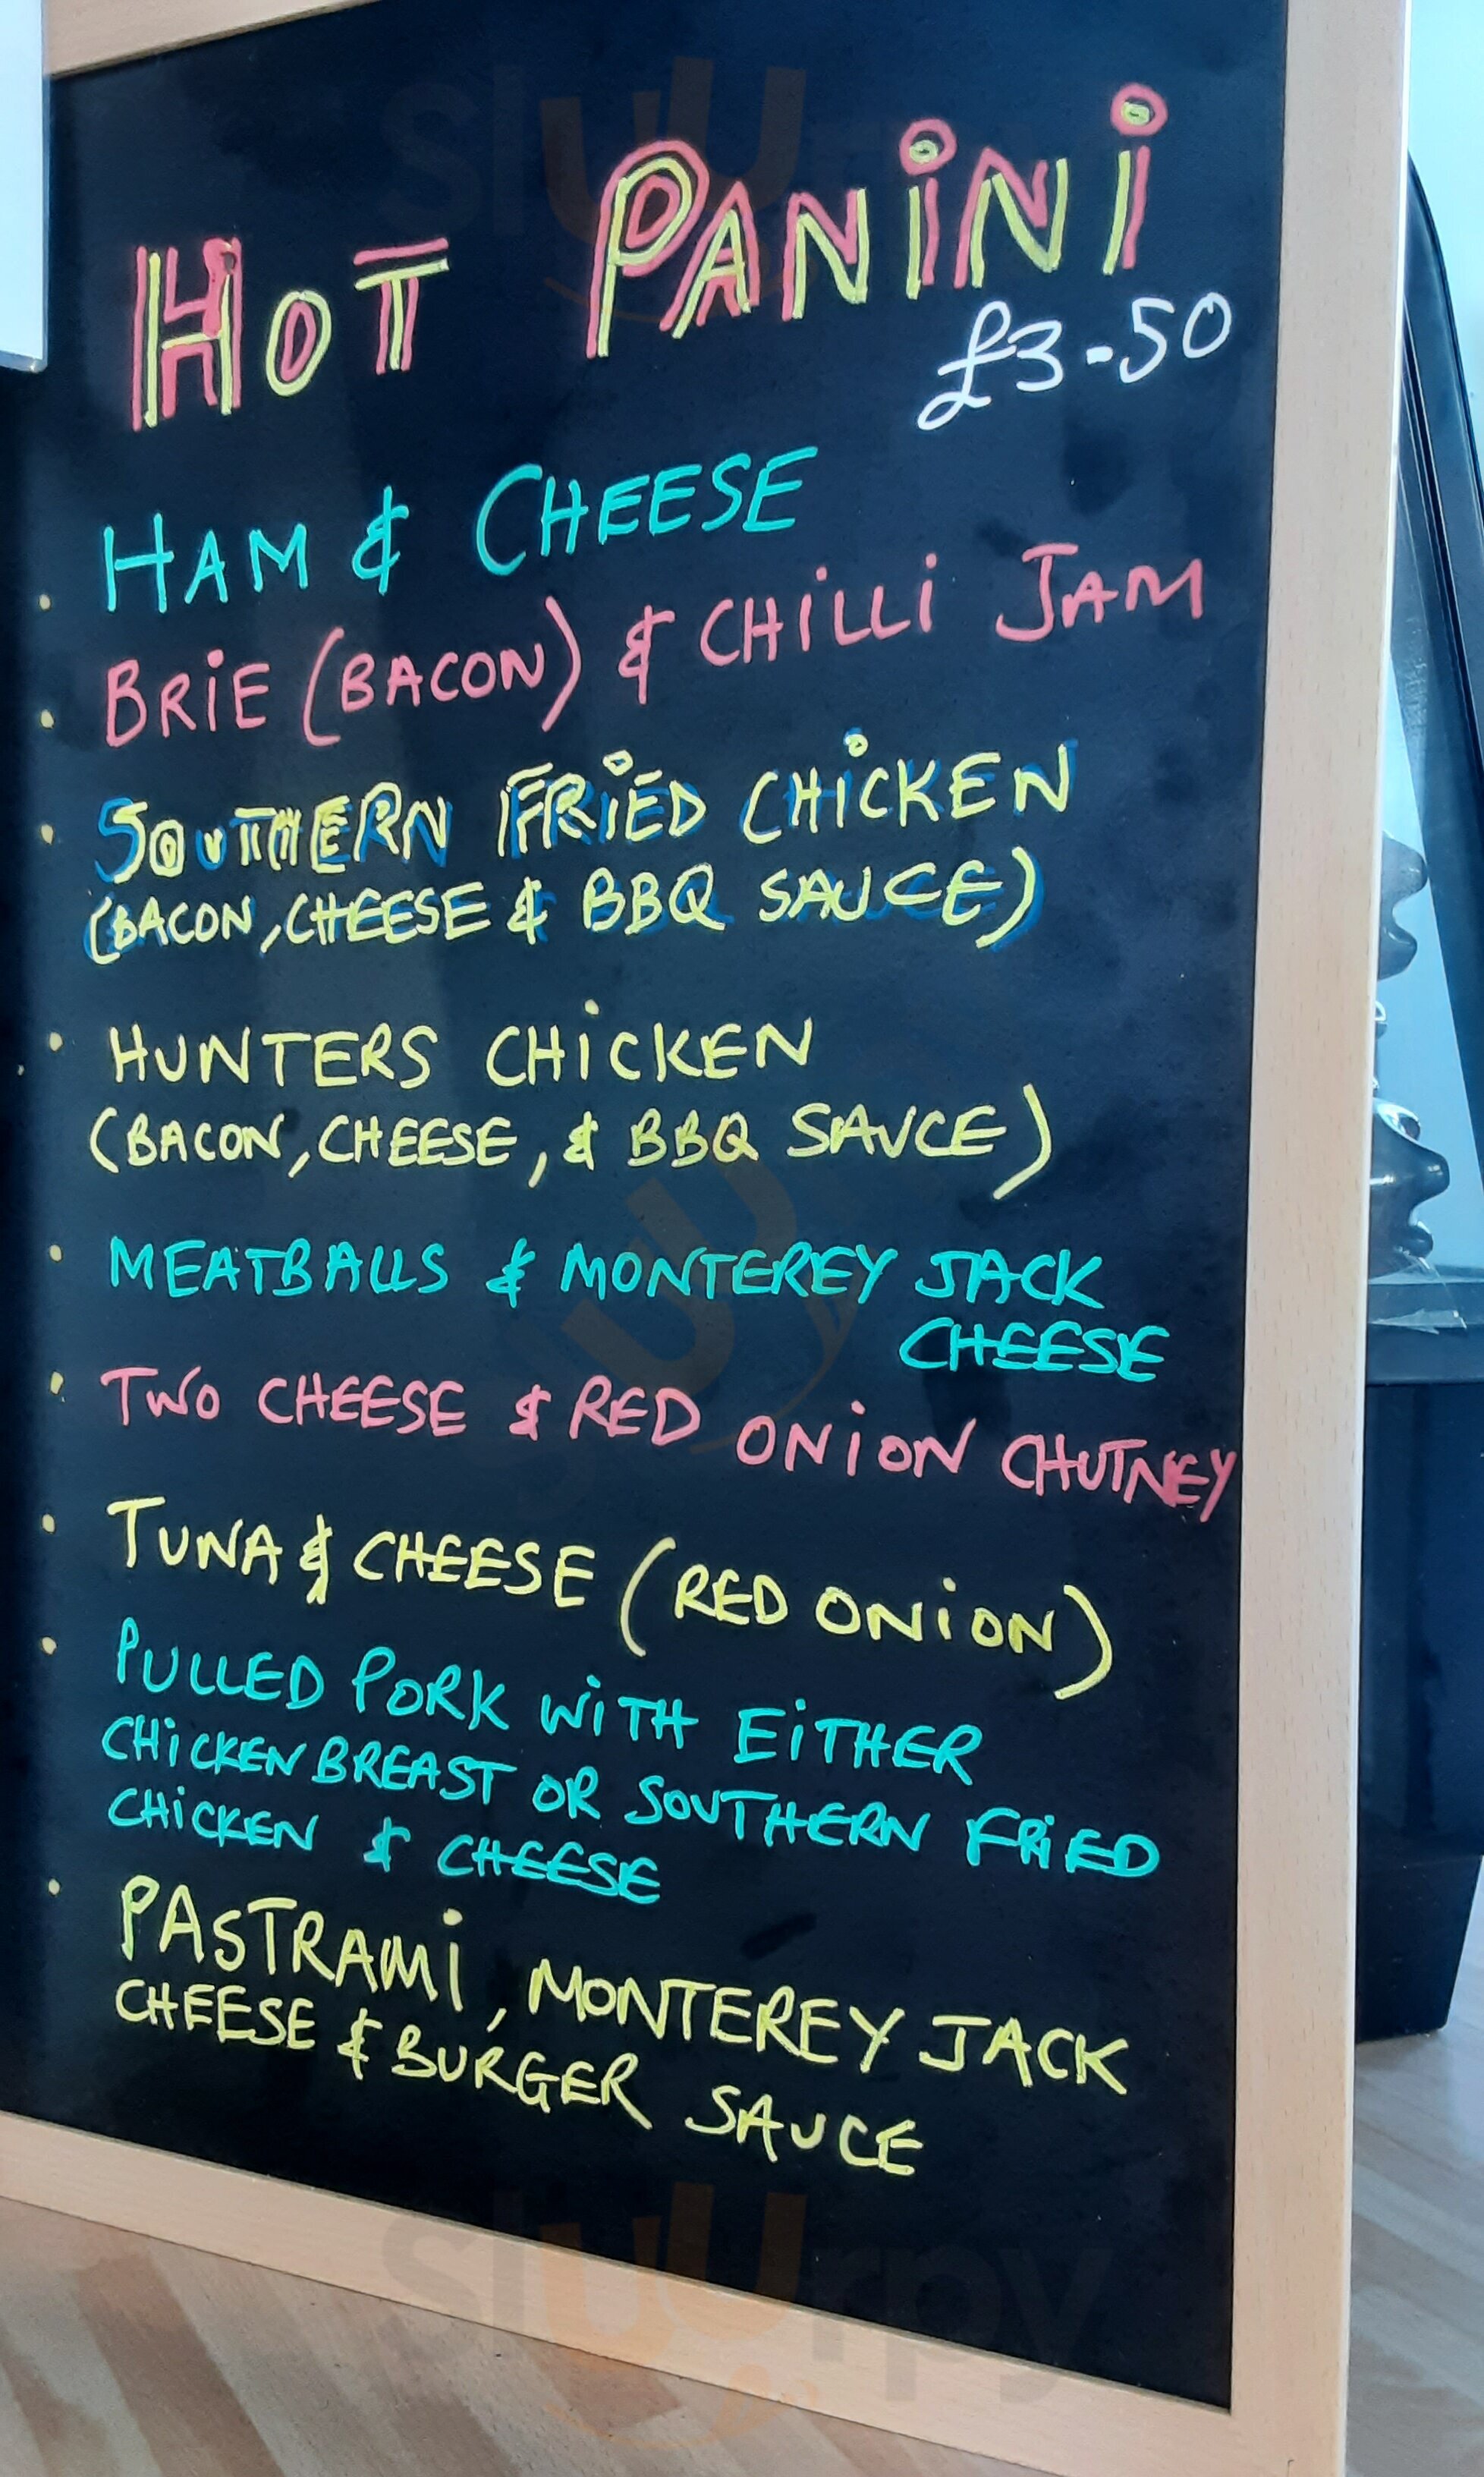 HOT PANiNi
£3-50
HAM & CHEESE
BRiE (BACON) & CHiLLi JAM
SOUTHERN FRiED CHiCKEN
(BACON, CHEESE & BBQ SAUCE)
HUNTERS CHiCKEN
(BACON, CHEESE, & BBQ SAUCE)
MEATBALLS & MONTEREY JACK
CHEESE
TWO CHEESE & RED ONiON CHUTNEY
TUNA & CHEESE (RED ONiON)
PULLED PORK WiTH EiTHER
CHiCKEN BREAST OR SOUTHERN FRiED
CHiCKEN & CHEESE
PASTRAMi, MONTEREY JACK
CHEESE & BURGER SAUCE
sluurpy